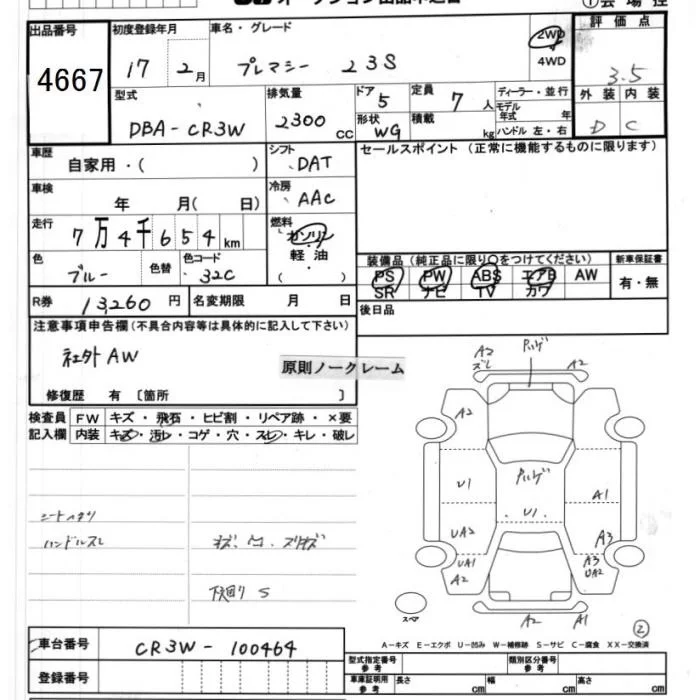 オークション出品申込書
①会場控
出品番号
4667
初度登録年月
17 2月
車名・グレード
プレマシー 23S
2WD
4WD
評価点
3.5
外装 内装
D C
型式
DBA-CR3W
排気量
2300 CC
ドア
5
形状
WG
定員
7 人
積載
kg
ディーラー・並行
モデル年式 年
ハンドル 左・右
車歴
自家用・( )
シフト
DAT
セールスポイント (正常に機能するものに限ります)
車検
年 月( 日)
冷房
AAC
走行
7万4千654km
燃料
ガソリン
軽油
( )
色
ブルー
色替
色コード
32C
装備品 (純正品に限り○をつけてください)
PS PW ABS エアB AW
SR ナビ TV カワ
新車保証書
有・無
R券
13,260 円
名変期限 月 日
後日品
注意事項申告欄(不具合内容等は具体的に記入して下さい)
社外AW
原則ノークレーム
修復歴 有 [箇所 ]
検査員 FW キズ・飛石・ヒビ割・リペア跡・×要
記入欄 内装 キズ・汚レ・コゲ・穴・スレ・キレ・破レ
シートヘタリ
ハンドルスレ
キズ、凹、スリキズ
下回り S
A2
ズレ
P.ハゲ
A2
A2
U1
P.ハゲ
U1
A1
UA2
A3
UA1
A2
A3
UA2
A2
A1
スペア
②
A-キズ E-エクボ U-凹み W-補修跡 S-サビ C-腐食 XX-交換済
車台番号
CR3W-100464
登録番号
型式指定番号
参考
類別区分番号
参考
車庫証明用
参考
長さ cm
幅 cm
高さ cm